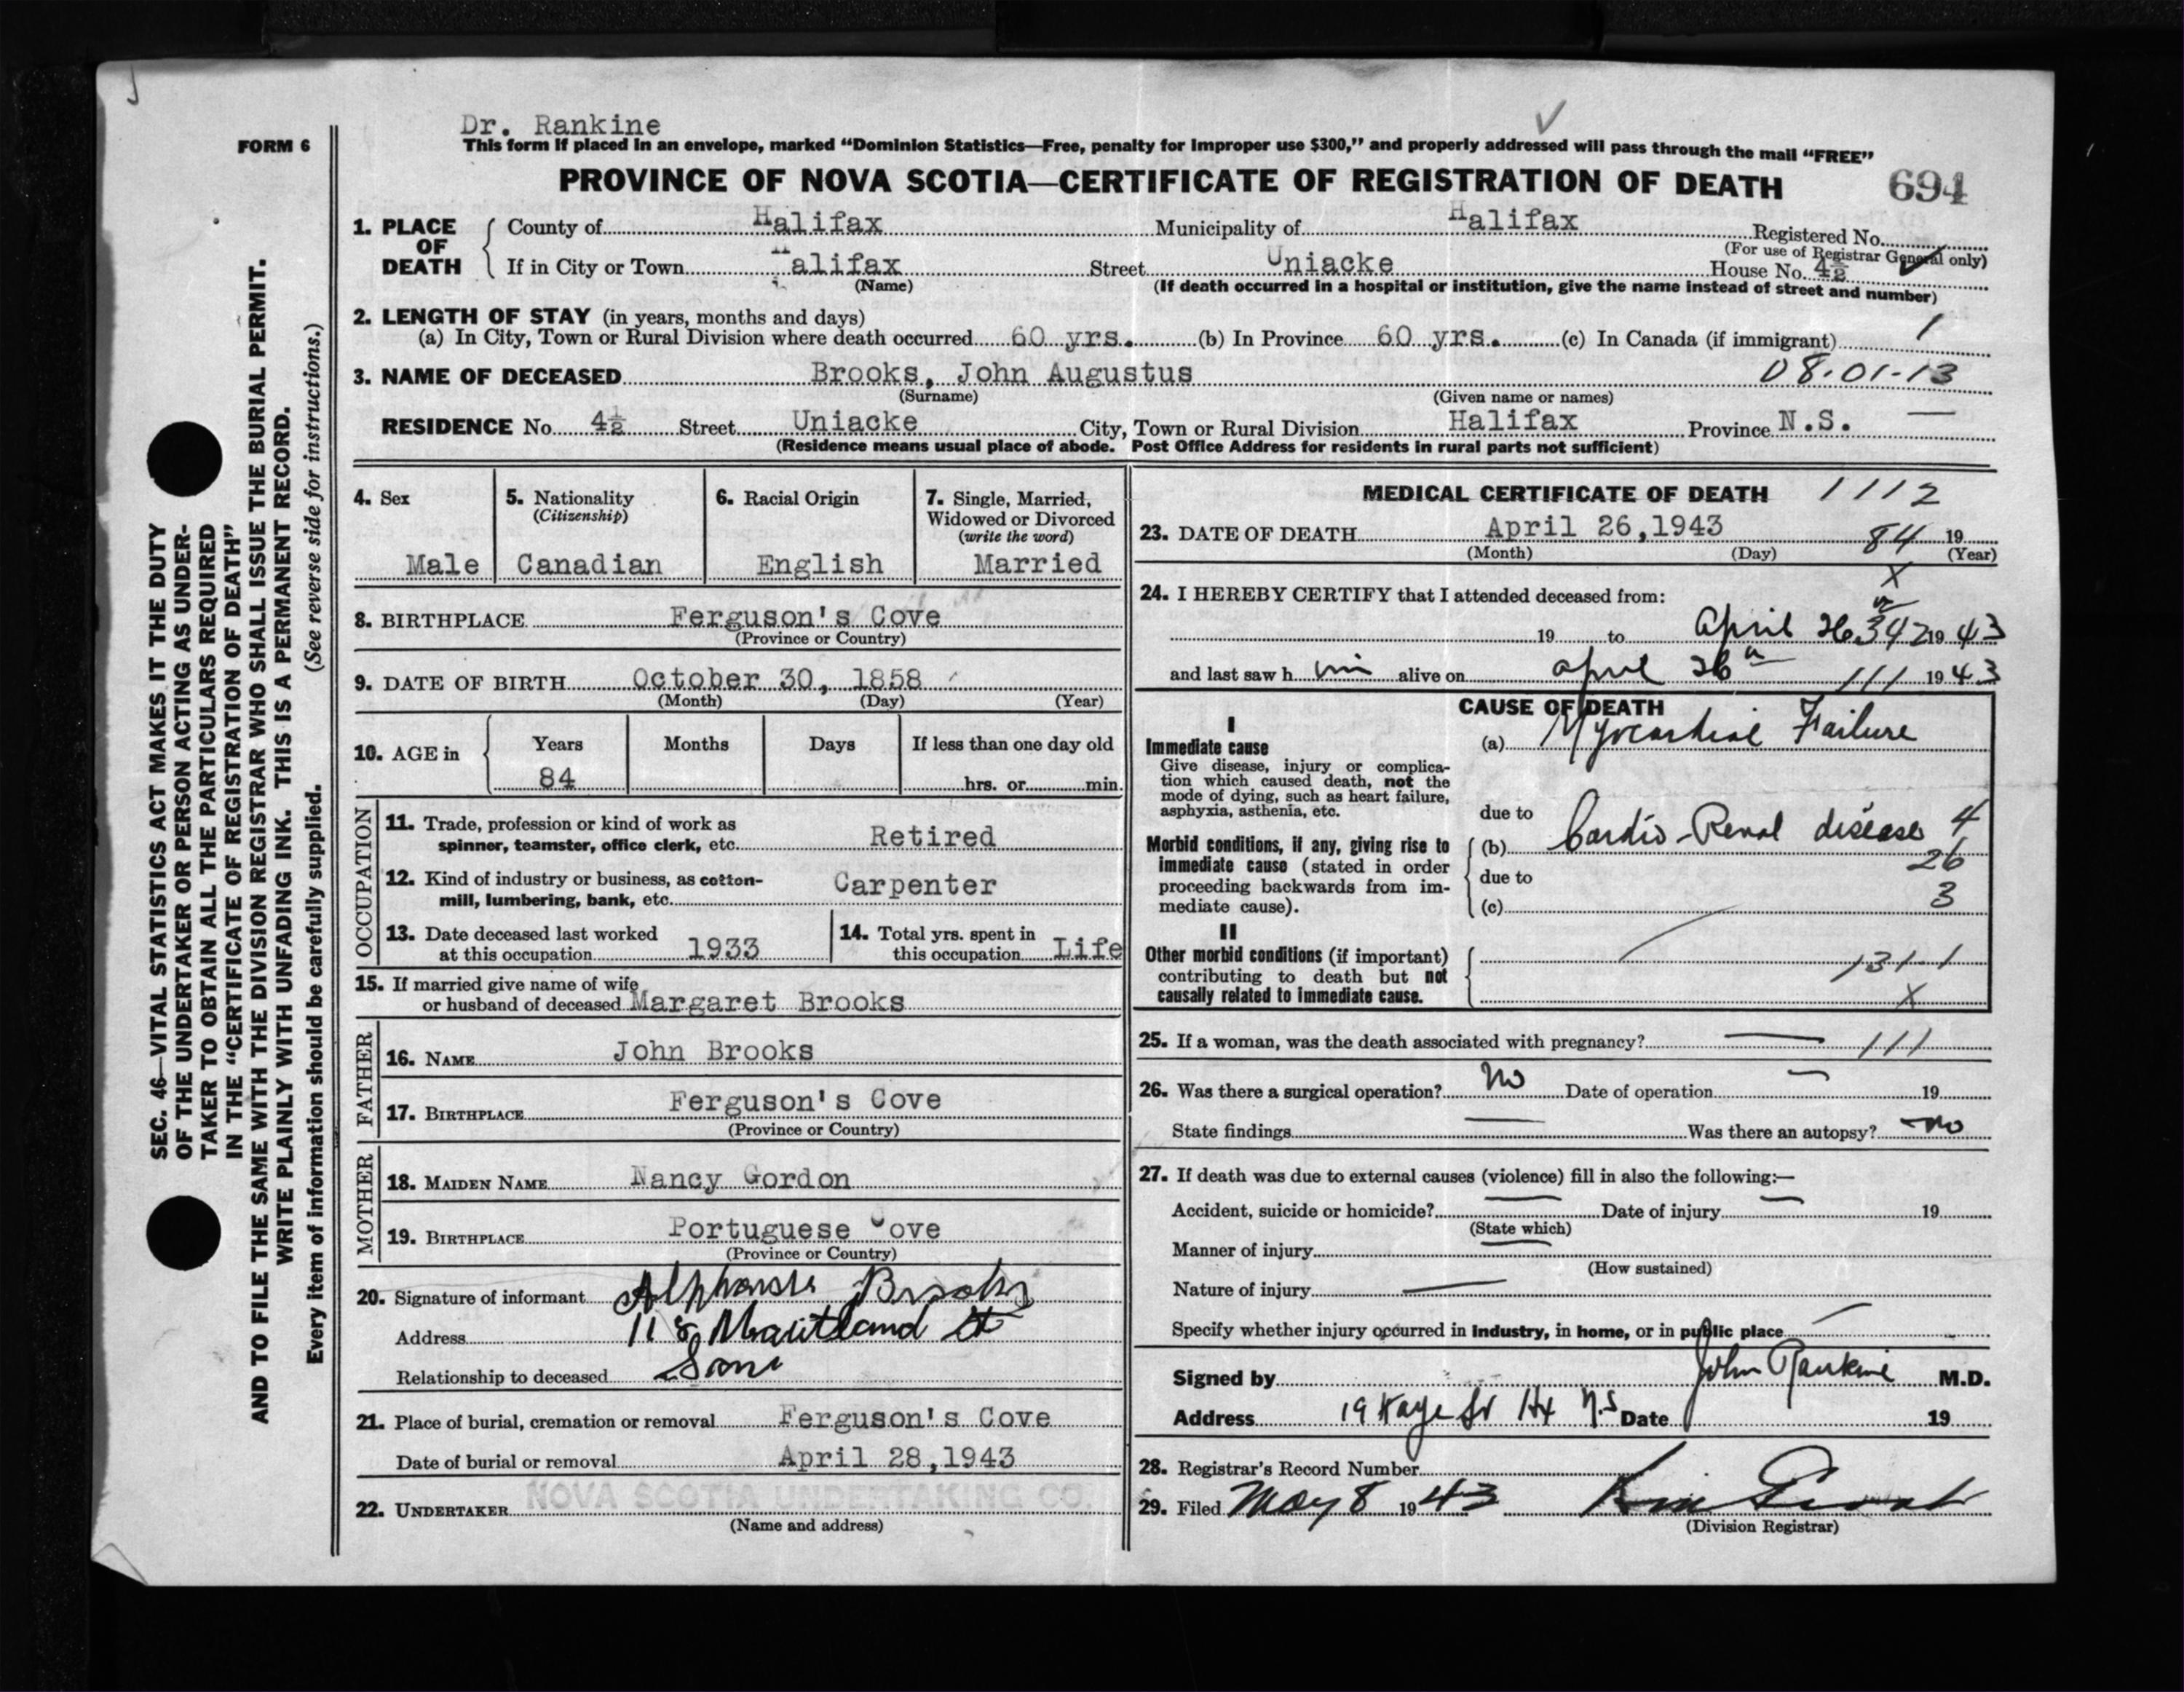 Dr. Rankine
FORM 6
This form if placed in an envelope, marked “Dominion Statistics—Free, penalty for improper use $300,” and properly addressed will pass through the mail “FREE”
PROVINCE OF NOVA SCOTIA—CERTIFICATE OF REGISTRATION OF DEATH 694
1. PLACE OF DEATH
County of Halifax Municipality of Halifax Registered No.
(For use of Registrar General only)
If in City or Town Halifax Street Uniacke House No. 4½
(Name) (If death occurred in a hospital or institution, give the name instead of street and number)
2. LENGTH OF STAY (in years, months and days)
(a) In City, Town or Rural Division where death occurred 60 yrs. (b) In Province 60 yrs. (c) In Canada (if immigrant) 1
3. NAME OF DECEASED Brooks, John Augustus 08-01-13
(Surname) (Given name or names)
RESIDENCE No. 4½ Street Uniacke City, Town or Rural Division Halifax Province N.S.
(Residence means usual place of abode. Post Office Address for residents in rural parts not sufficient)
4. Sex
Male
5. Nationality
(Citizenship)
Canadian
6. Racial Origin
English
7. Single, Married,
Widowed or Divorced
(write the word)
Married
8. BIRTHPLACE Ferguson's Cove
(Province or Country)
9. DATE OF BIRTH October 30, 1858
(Month) (Day) (Year)
10. AGE in
Years Months Days If less than one day old
84 hrs. or min.
OCCUPATION
11. Trade, profession or kind of work as
spinner, teamster, office clerk, etc. Retired
12. Kind of industry or business, as cotton-
mill, lumbering, bank, etc. Carpenter
13. Date deceased last worked
at this occupation 1933
14. Total yrs. spent in
this occupation Life
15. If married give name of wife
or husband of deceased Margaret Brooks
FATHER
16. NAME John Brooks
17. BIRTHPLACE Ferguson's Cove
(Province or Country)
MOTHER
18. MAIDEN NAME Nancy Gordon
19. BIRTHPLACE Portuguese Cove
(Province or Country)
20. Signature of informant Alphonsus Brooks
Address 118 Maitland St
Relationship to deceased Son
21. Place of burial, cremation or removal Ferguson's Cove
Date of burial or removal April 28,1943
22. UNDERTAKER NOVA SCOTIA UNDERTAKING CO.
(Name and address)
MEDICAL CERTIFICATE OF DEATH 1112
23. DATE OF DEATH April 26,1943 84 19
(Month) (Day) (Year)
X
24. I HEREBY CERTIFY that I attended deceased from:
19 to April 26 342 19 43
and last saw h im alive on April 26th 111 19 43
CAUSE OF DEATH
I
Immediate cause
Give disease, injury or complica-
tion which caused death, not the
mode of dying, such as heart failure,
asphyxia, asthenia, etc.
(a) Myocardial Failure
due to
Morbid conditions, if any, giving rise to
immediate cause (stated in order
proceeding backwards from im-
mediate cause).
(b) Cardio-Renal disease 4
26
due to
(c) 3
II
Other morbid conditions (if important)
contributing to death but not
causally related to immediate cause.
131-1
X
25. If a woman, was the death associated with pregnancy? 111
26. Was there a surgical operation? No Date of operation 19
State findings Was there an autopsy? no
27. If death was due to external causes (violence) fill in also the following:—
Accident, suicide or homicide? Date of injury 19
(State which)
Manner of injury
(How sustained)
Nature of injury
Specify whether injury occurred in industry, in home, or in public place
Signed by John Rankine M.D.
Address 19 Kaye St Hx N.S Date 19
28. Registrar's Record Number
29. Filed May 8 1943
(Division Registrar)
SEC. 46—VITAL STATISTICS ACT MAKES IT THE DUTY
OF THE UNDERTAKER OR PERSON ACTING AS UNDER-
TAKER TO OBTAIN ALL THE PARTICULARS REQUIRED
IN THE “CERTIFICATE OF REGISTRATION OF DEATH”
AND TO FILE THE SAME WITH THE DIVISION REGISTRAR WHO SHALL ISSUE THE BURIAL PERMIT.
WRITE PLAINLY WITH UNFADING INK. THIS IS A PERMANENT RECORD.
Every item of information should be carefully supplied. (See reverse side for instructions.)